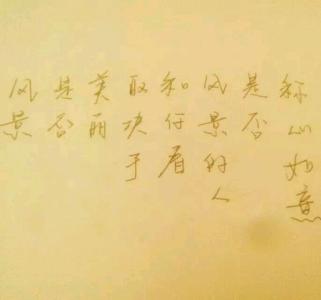 风景
是否
美丽
取决于
和你看
风景的人
是否
称心如意